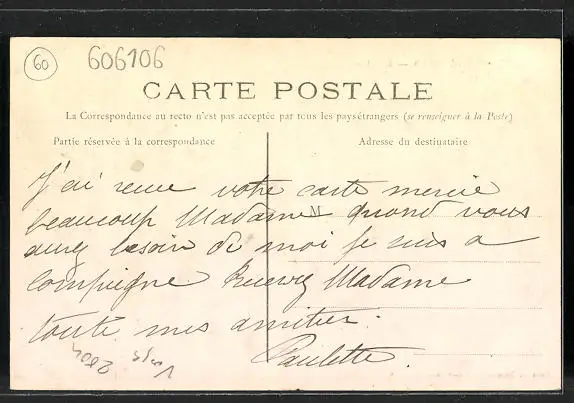 60
606106
CARTE POSTALE
La Correspondance au recto n'est pas acceptée par tous les paysétrangers (se renseigner à la Poste)
Partie réservée à la correspondance
Adresse du destinataire
J'ai reçue votre carte mercie
beaucoup Madame quand vous
M
aurez besoin de moi je suis a
Compiegne Recevez Madame
toute mes amitier.
Paulette.